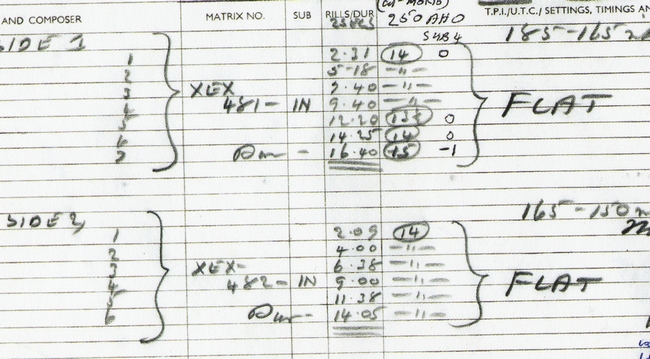 AND COMPOSER MATRIX NO. SUB RILLS/DUR 250 AHO T.P.I./U.T.C./ SETTINGS, TIMINGS AN
SUB 4 185-165
SIDE 1
1 2.31 14 0
2 5-18 -"-
3 XEX 7.40 -"-
4 481- IN 9.40 -"- FLAT
5 12.20 0
6 14.25 14 0
7 16.40 15 -1
165-150
SIDE 2
1 2.09 14
2 4.00 -"-
3 XEX- 6.38 -"-
4 482- IN 9.00 -"- FLAT
5 11.38 -"-
6 14.05 -"-